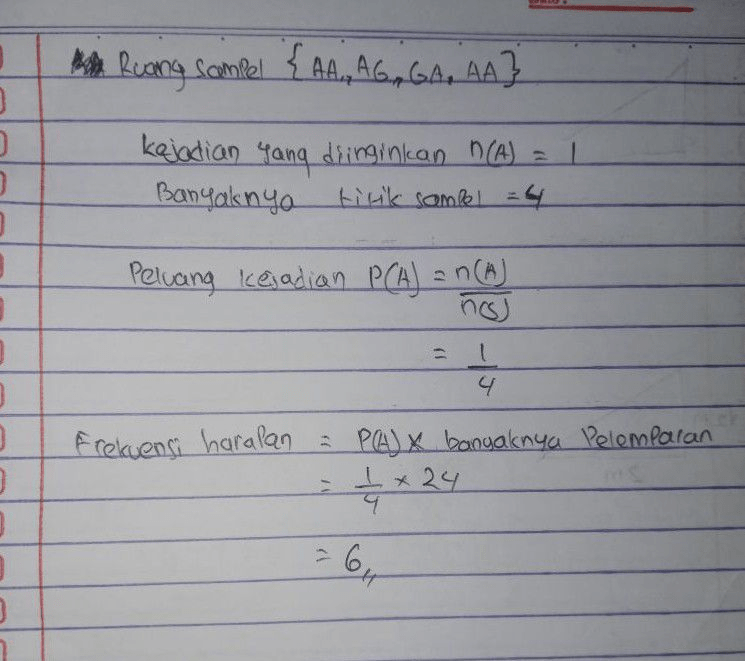 Ruang sampel { AA,, AG,, GA, AA }
Kejadian yang diinginkan n(A) = 1
Banyaknya titik sampel = 4
Peluang kejadian P(A) = n(A)
n(s)
= 1
4
Frekuensi harapan = P(A) × banyaknya Pelemparan
= 1/4 × 24
= 6,,